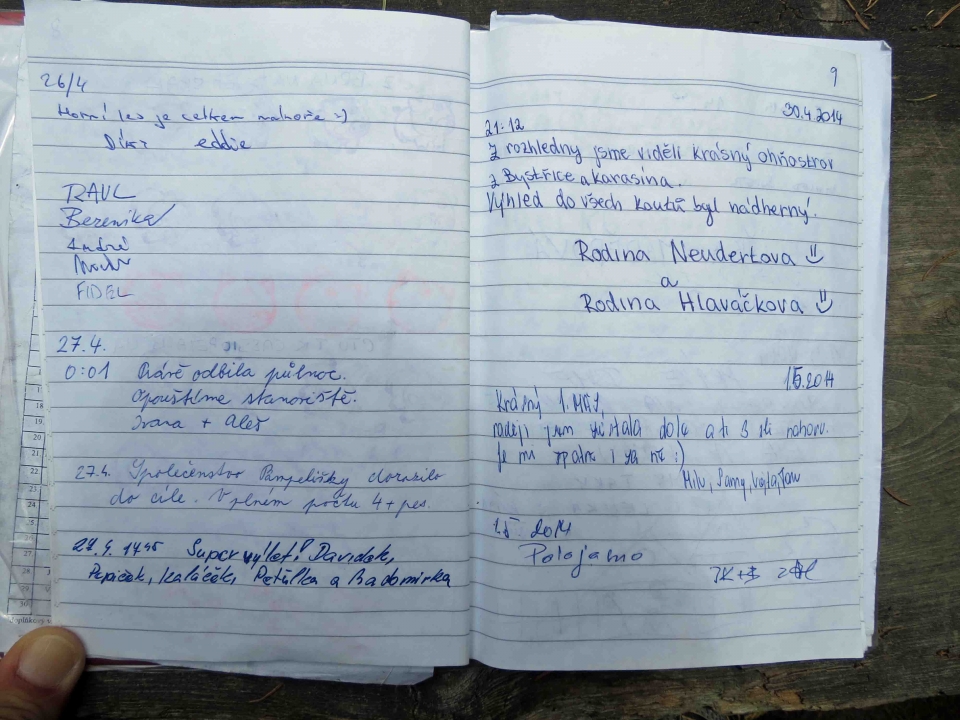 26/4
Horní les je celkem nahoře :)
Díky eddie
RAUL
Berenika
André
FIDEL
27.4.
0:01 Právě odbila půlnoc.
Opouštíme stanoviště.
Ivana + Aleš
27.4. Společenstvo Pampelišky dorazilo
do cíle. V plném počtu 4 + pes.
27.4. 1445 Super výlet! Davídek,
Pepíček, Kaláček, Petulka a Badomirka
9
30.4.2014
21.12
Z rozhledny jsme viděli krásný ohňostroj
z Bystřice a karasína.
Výhled do všech koutů byl nádherný.
Rodina Neudertova
a
Rodina Hlaváčkova
1.5.2014
Krásný 1. MÁJ,
raději jsem zůstala dole a ti 3 šli nahoru.
Je mi špatně i za ně :)
Samy, Vojta,
1.5. 2014
Polojamo